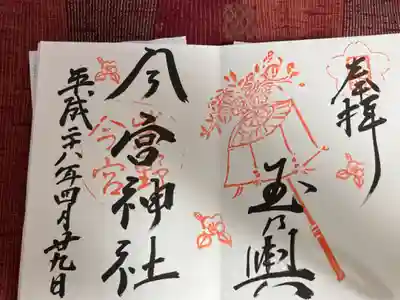 奉拝
玉乃輿
今宮神社
平成二十八年四月廿九日
今宮